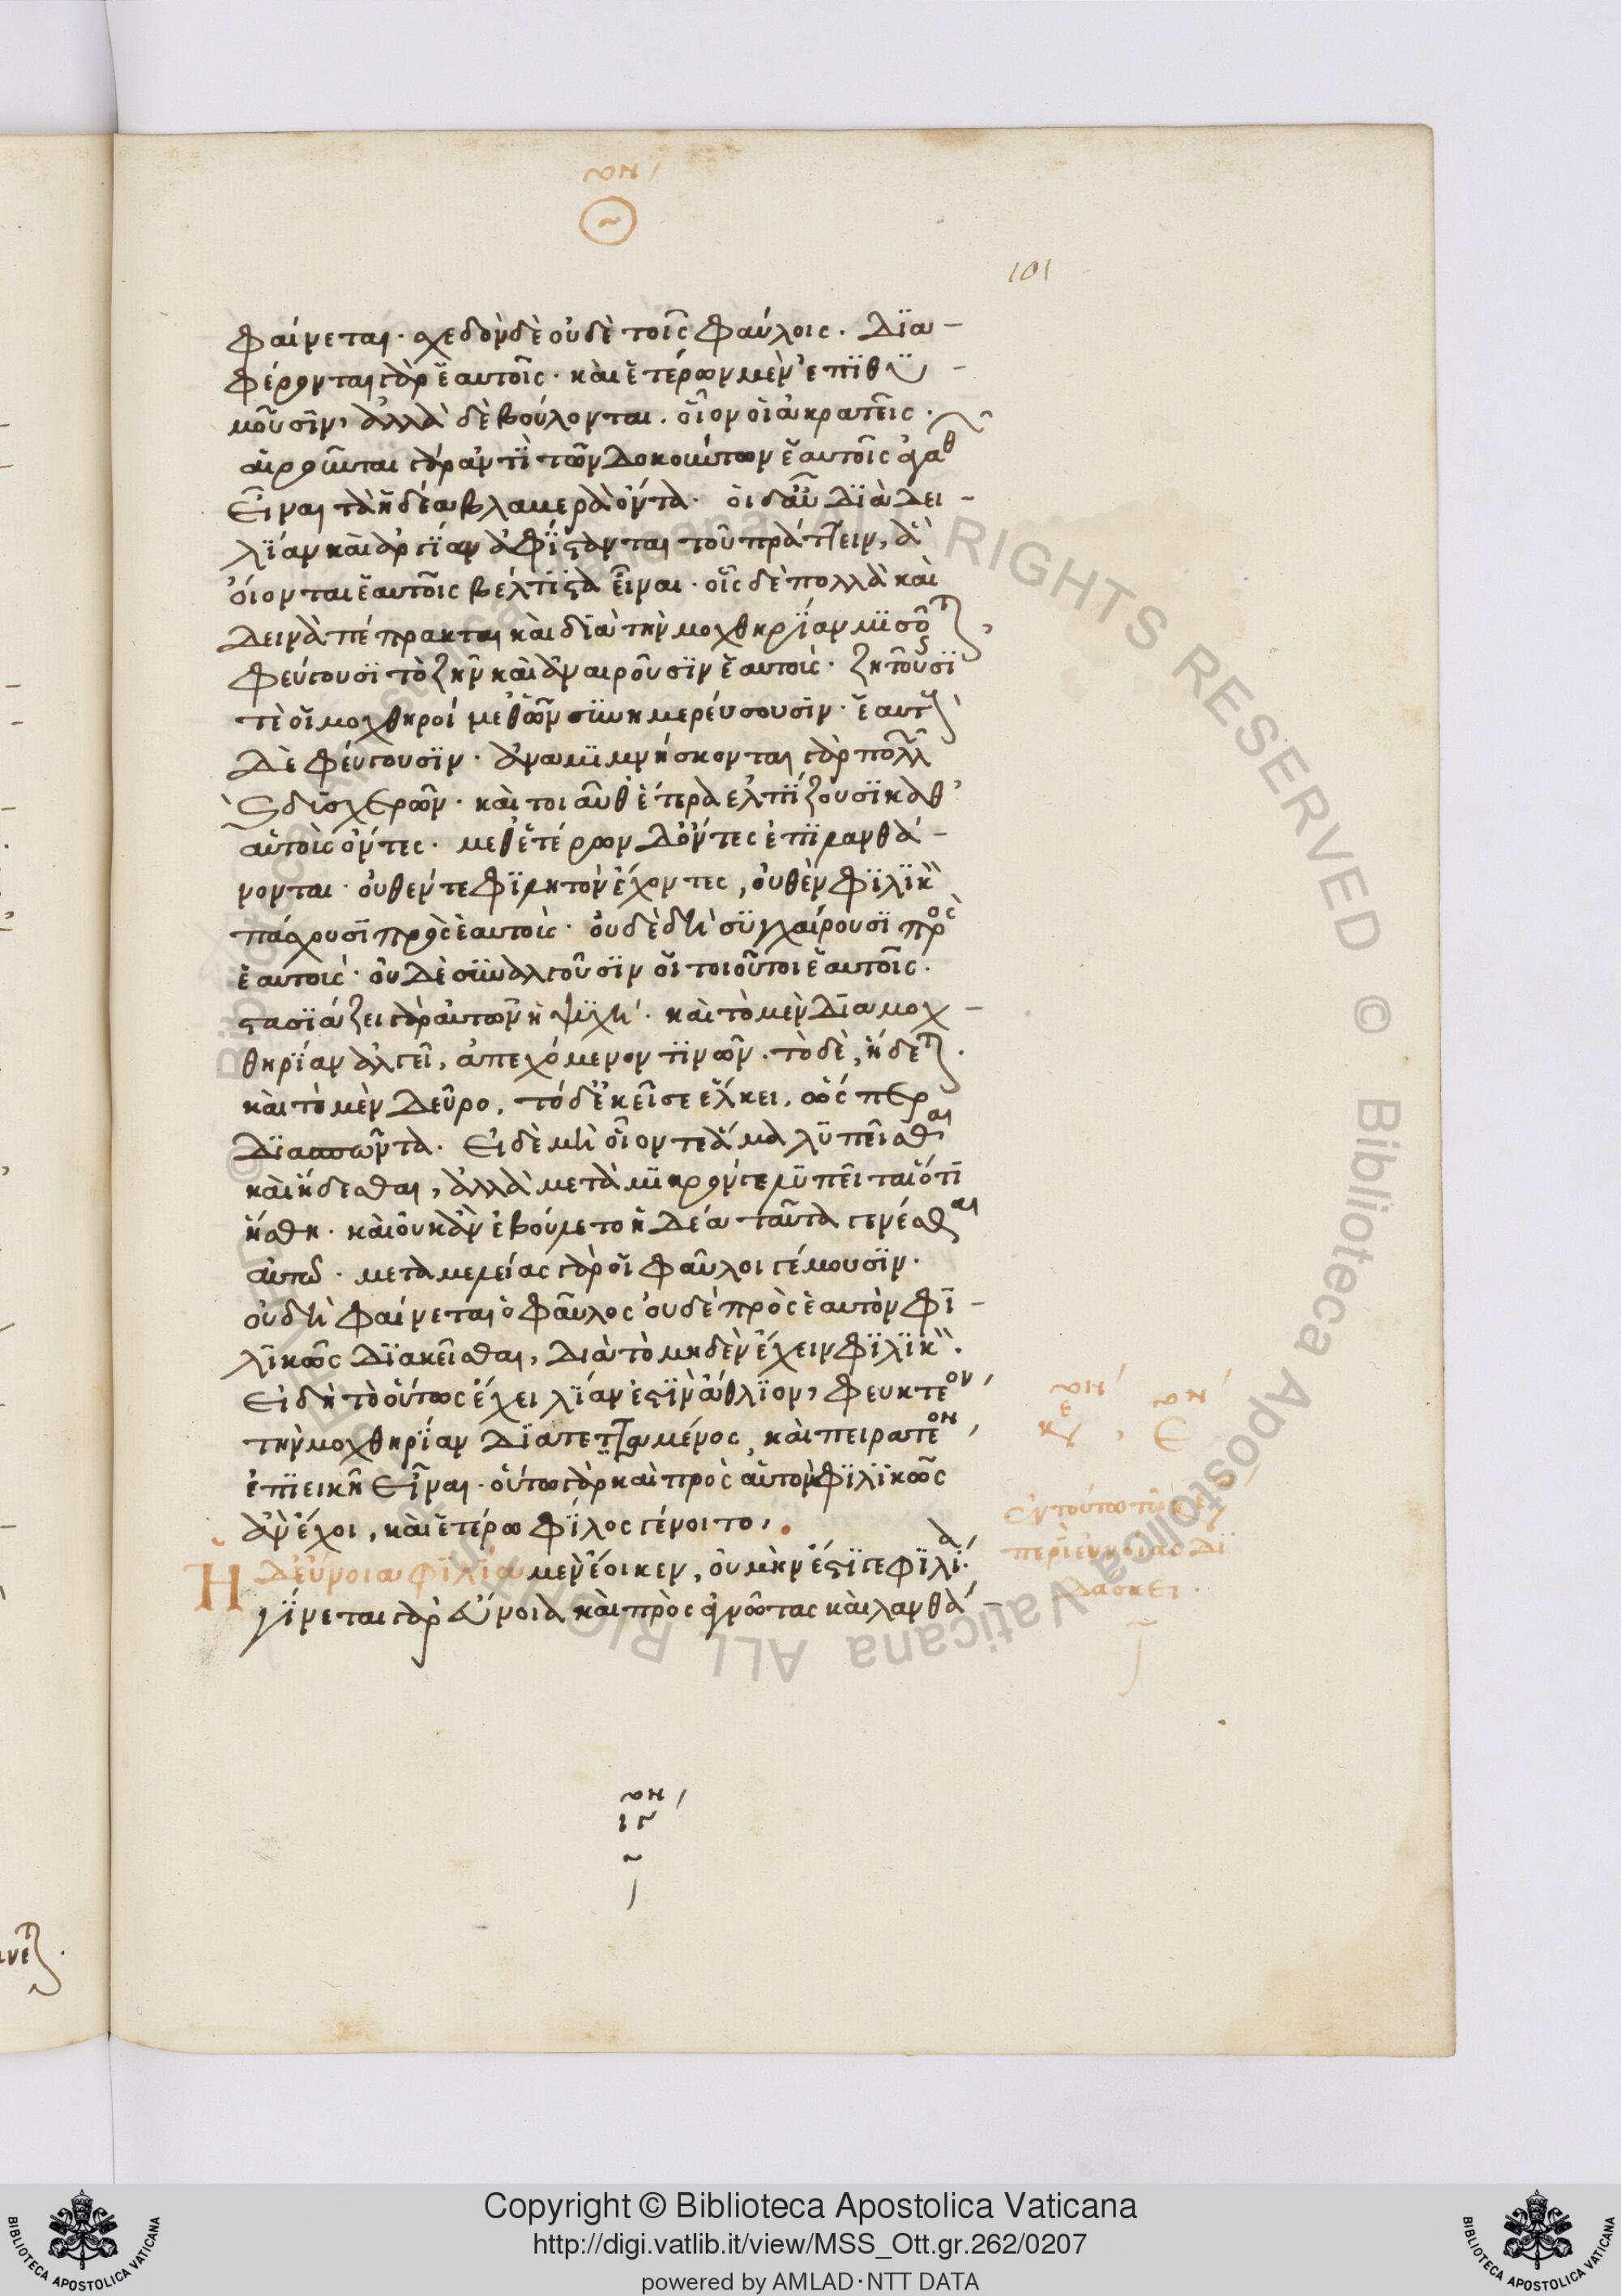 101
φαίνεται· σχεδὸν δὲ οὐδὲ τοῖς φαύλοις. Δϊα-
φέρονται γὰρ ἑαυτοῖς· καὶ ἑτέρων μὲν ἐπϊθϋ-
μοῦσϊν, ἀλλὰ δὲ βούλονται. οἷον οἱ ἀκρατεῖς·
αἱροῦνται γὰρ ἀντὶ τῶν δοκούντων ἑαυτοῖς ἀγαθ
εἶναι τὰ ἡδέα βλαβερὰ ὄντα· οἱ δ' αὖ δϊὰ δει-
λϊαν καὶ ἀργϊαν ἀφϊστανται τοῦ πράττειν, ἃ
οἴονται ἑαυτοῖς βέλτϊστα εἶναι· οἷς δὲ πολλὰ καὶ
δεινὰ πέπρακται καὶ δϊὰ τὴν μοχθηρϊαν μϊσοῦνται,
φεύγουσϊ τὸ ζῆν καὶ ἀναιροῦσϊν ἑαυτούς· ζητοῦσϊ
τὲ οἱ μοχθηροί μεθ' ὧν συνημερεύσουσϊν· ἑαυτοὺς
δὲ φεύγουσϊν· ἀναμϊμνήσκονται γὰρ πολλῶν
καὶ δϋσχερῶν· καὶ τοιαῦθ' ἕτερα ἐλπϊζουσϊ καθ'
αὑτοὺς ὄντες· μεθ' ἑτέρων δ' ὄντες ἐπϊλανθά-
νονται· οὐθέν τε φϊλητὸν ἔχοντες, οὐθὲν φϊλϊκὸν
πάσχουσϊ πρὸς ἑαυτούς· οὐδὲ δὴ συγχαίρουσϊ πρὸς
ἑαυτούς· οὐδὲ συναλγοῦσϊν οἱ τοιοῦτοι ἑαυτοῖς·
στασϊάζει γὰρ αὐτῶν ἡ ψϋχή· καὶ τὸ μὲν δϊὰ μοχ-
θηρϊαν ἀλγεῖ, ἀπεχόμενον τϊνῶν· τὸ δὲ, ἥδεται.
καὶ τὸ μὲν δεῦρο, τὸ δ' ἐκεῖσε ἕλκει, ὥσπερ
δϊασπῶντα. Εἰ δὲ μὴ οἷόν τε ἅμα λϋπεῖσθαι
καὶ ἥδεσθαι, ἀλλὰ μετὰ μϊκρόν γε λϋπεῖται ὅτϊ
ἥσθη· καὶ οὐκ ἂν ἐβούλετο ἡδέα ταῦτα γενέσθαι
αὐτῷ· μεταμελείας γὰρ οἱ φαῦλοι γέμουσϊν·
οὐ δὴ φαίνεται ὁ φαῦλος οὐδὲ πρὸς ἑαυτὸν φϊ-
λϊκῶς δϊακεῖσθαι, διὰ τὸ μηδὲν ἔχειν φϊλϊκὸν.
Εἰ δὴ τὸ οὕτως ἔχει λϊαν ἐστϊν ἄθλϊον, φευκτέον,
τὴν μοχθηρϊαν δϊατεταμένως, καὶ πειρατέον,
ἐπϊεικῆ εἶναι· οὕτω γὰρ καὶ πρὸς αὑτὸν φϊλϊκῶς
ἂν ἔχοι, καὶ ἑτέρω φϊλος γένοιτο,
Ἡ δ' εὔνοια φϊλϊα μὲν ἔοικεν, οὐ μὴν ἔστϊ γε φϊλϊα·
γϊνεται γὰρ εὔνοια καὶ πρὸς ἀγνῶτας καὶ λανθά-
ἐν τούτω τῷ
περὶ εὐνοίας δϊ
δάσκει.
Copyright © Biblioteca Apostolica Vaticana
http://digi.vatlib.it/view/MSS_Ott.gr.262/0207
powered by AMLAD·NTT DATA
BIBLIOTECA APOSTOLICA VATICANA
BIBLIOTECA APOSTOLICA VATICANA
© Biblioteca Apostolica Vaticana ALL RIGHTS RESERVED © Biblioteca Apostolica Vaticana ALL RIGHTS RESERVED